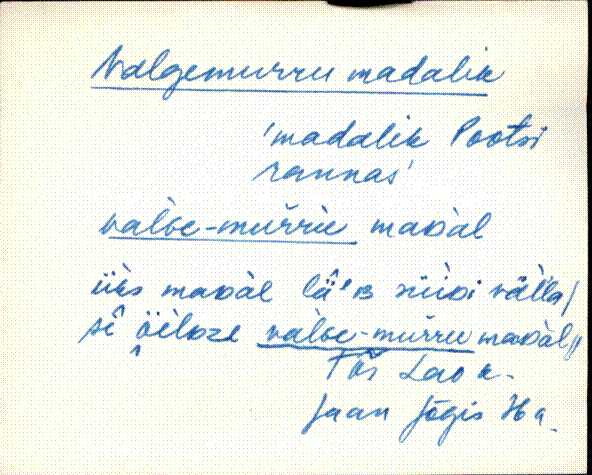 Valgemurru madalik
'madalik Pootsi
rannas'
valGe-murru maDàl
üks maDàl läˈB nüiDi välla/
sê öèlDze valGe-murru maDàl//
Tõs Lao k.
Jaan Jõgis Ha.